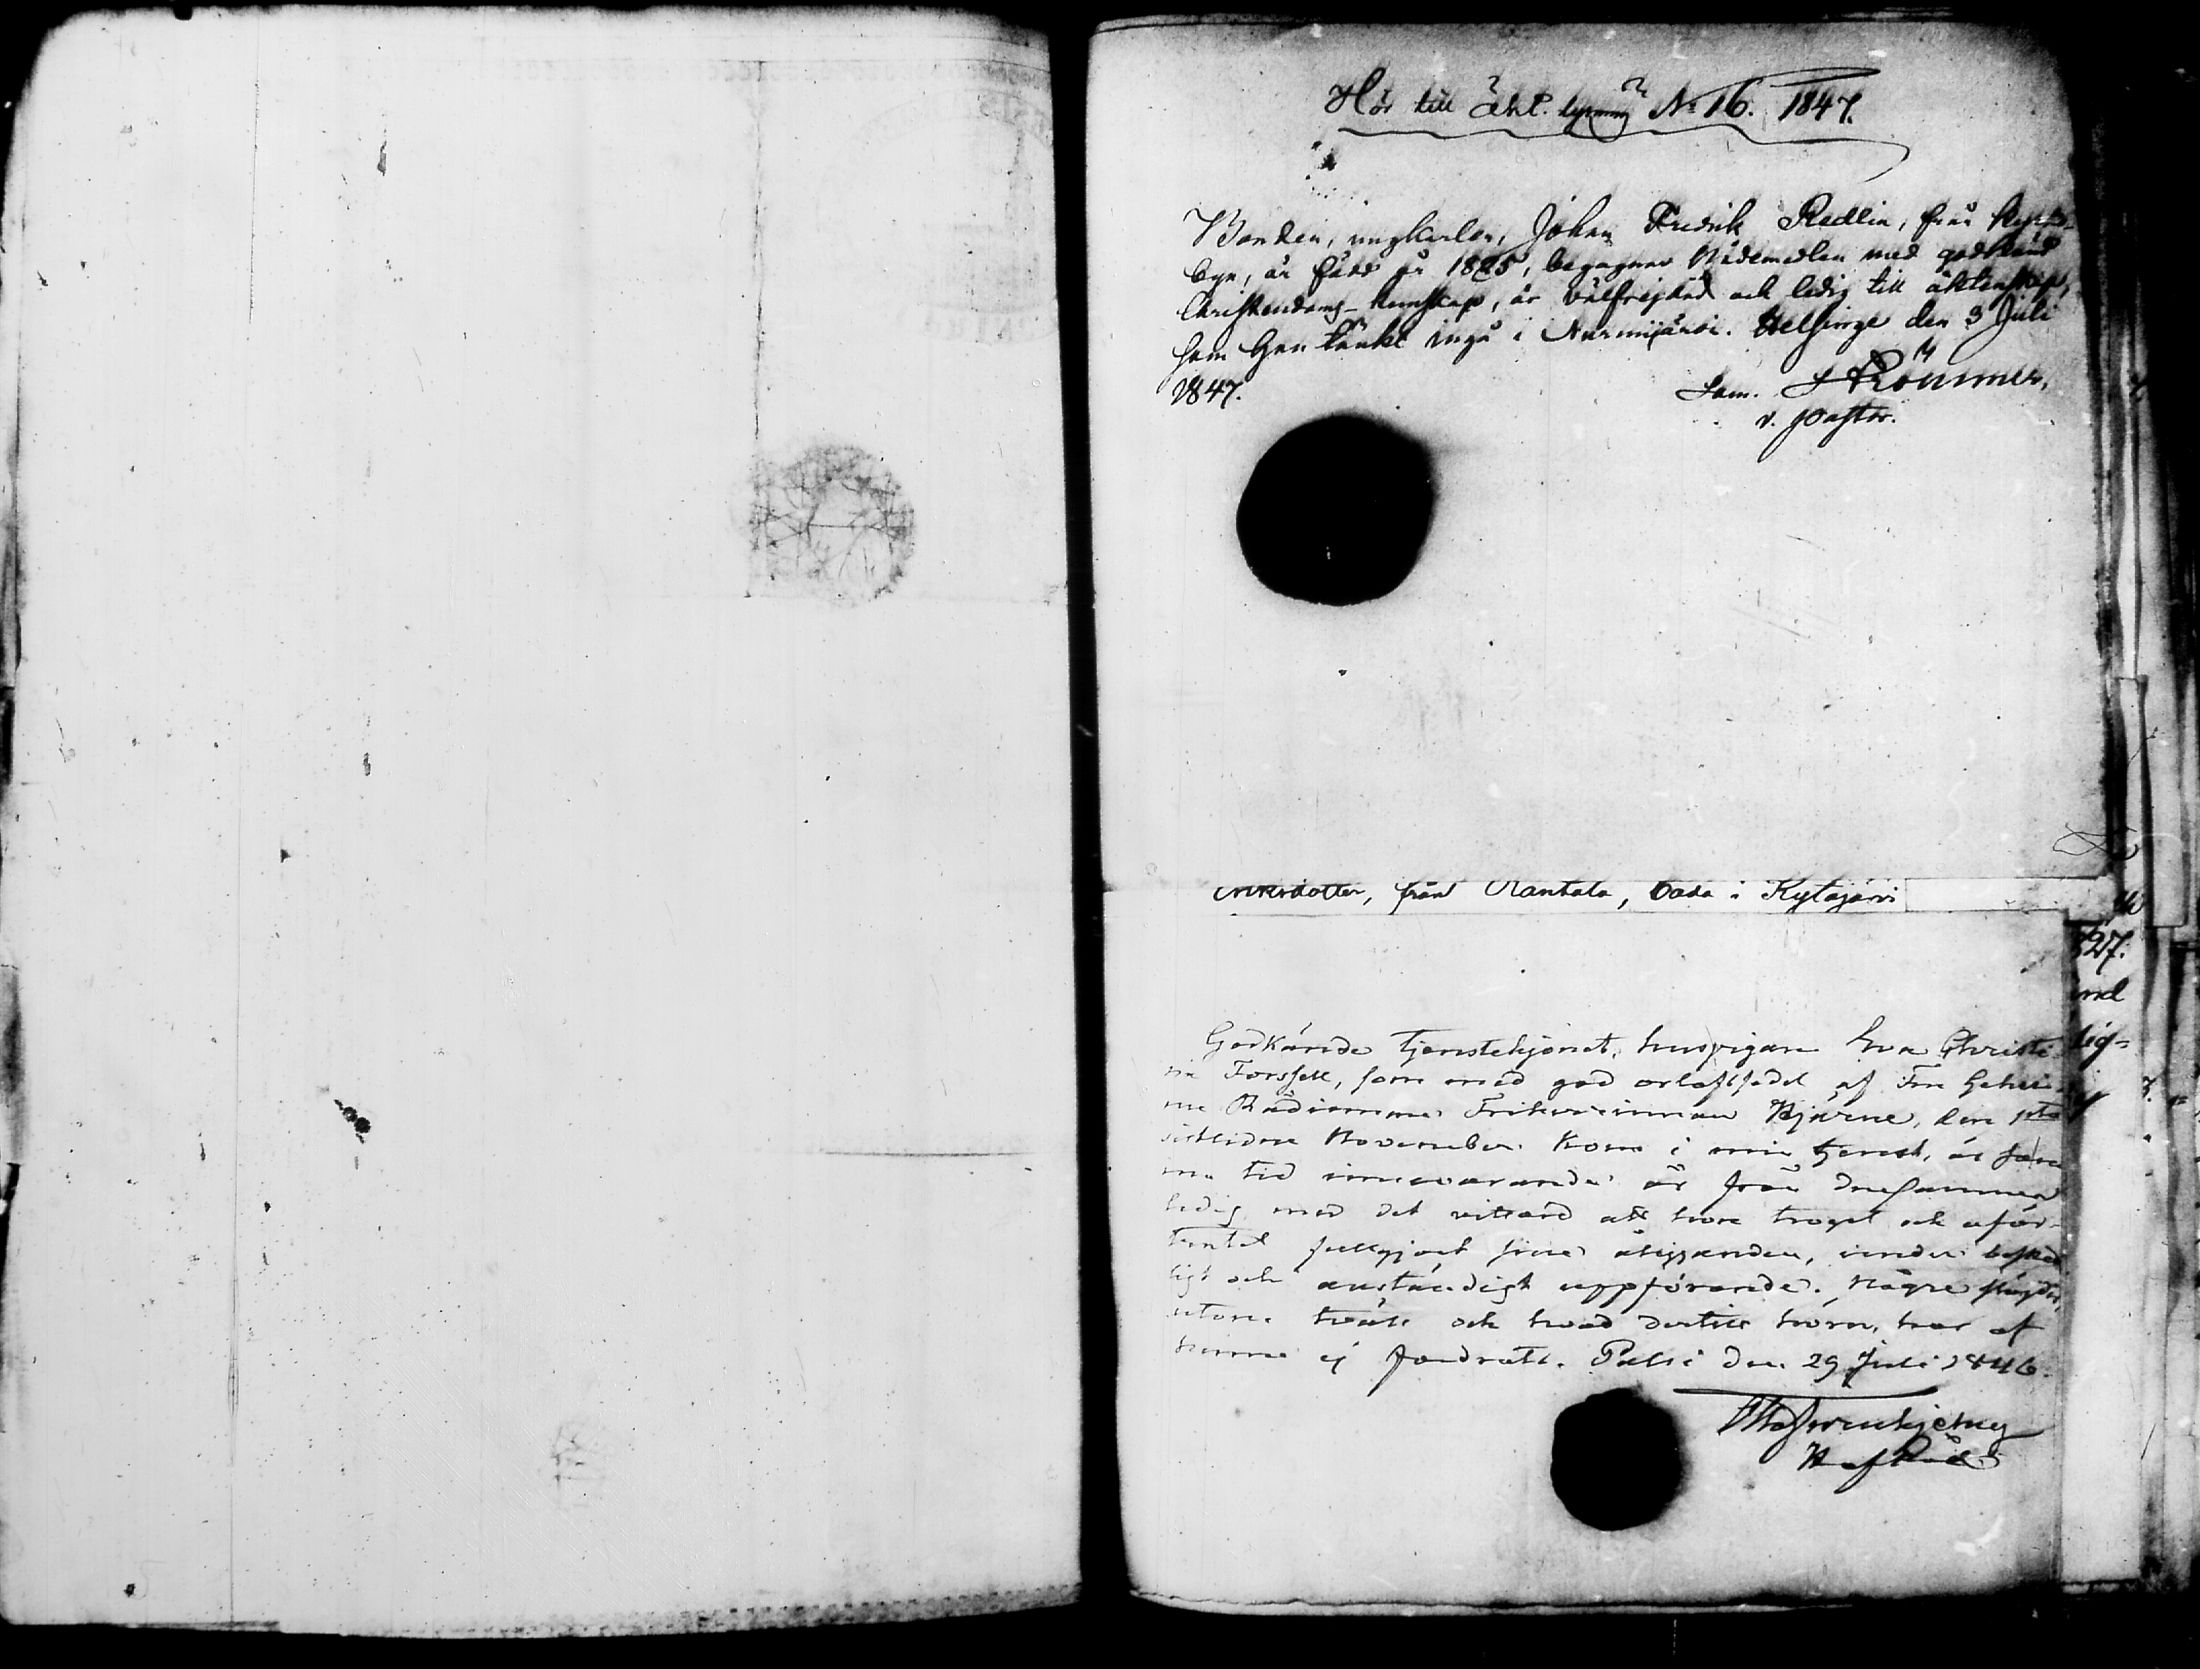 Hör till äkt. lysning No 16. 1847.
Bonden, ungkarlen, Johan Fredrik Redlin, från Kyrko-
byn, är född år 1825, begagnar Nådemedlen med godkänd
Christendoms-kunskap, är välfrejdad och ledig till äktenskap,
som han tänkt ingå i Nurmijärvi. Helsinge den 3 Juli
1847.
Sam. Strömmer,
v. pastor.
dotter, från Rantala, båda i Kytäjärvi
Godkände tjenstehjonet, huspigan Eva Christi
na Forssell, som med god orlofssedel af Fru Gehei-
me Rådinnan Friherrinnan Hjärne, den 1sta
sistlidne November kom i min tjenst, är sam
ma tid innevarande år från densamma
ledig med det vittsord att hon troget och oför-
fullgjort sine åligganden, under besked
ligt och anständigt uppförande. Några
utom och hvad dertill hörer, har af
henne ej fordrats. den 29 Juli 1846.
Hof Råd
327.
lig=